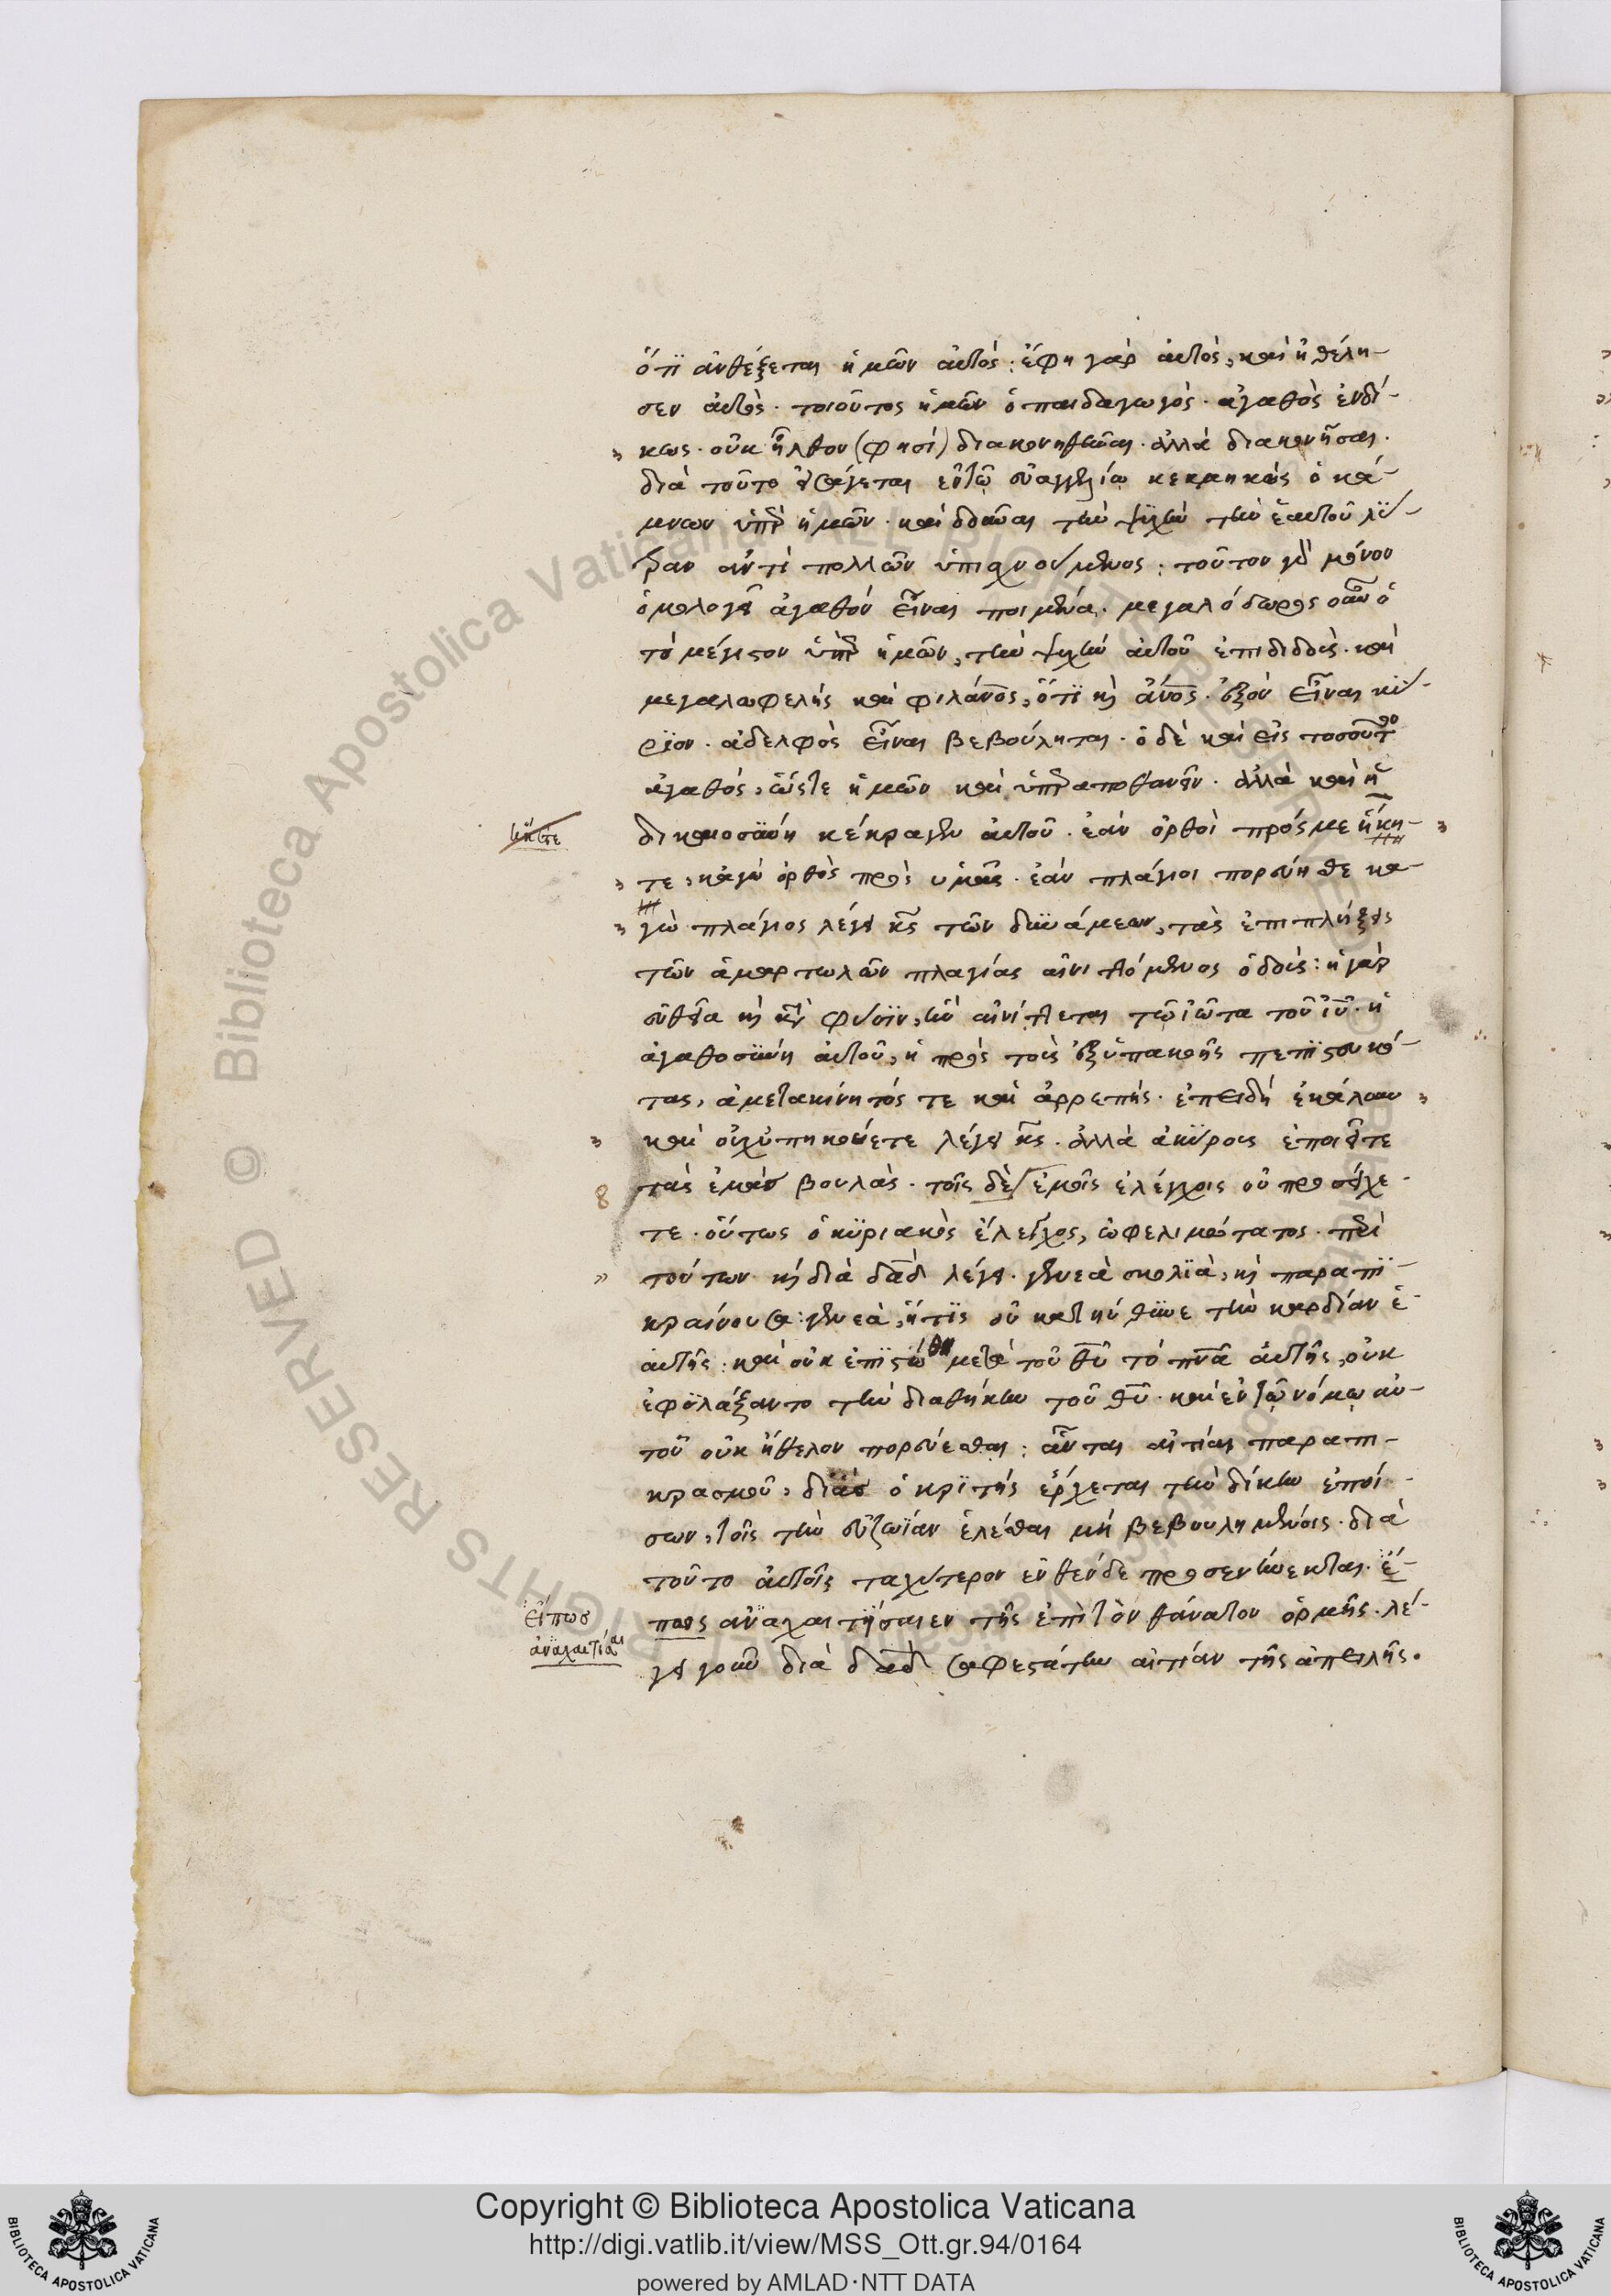 ὅτι ἀνθέξεται ἡμῶν αὐτός· ἔφη γὰρ αὐτός, καὶ ἠθέλη-
σεν αὐτός. τοιοῦτος ἡμῶν ὁ παιδαγωγός. ἀγαθὸς ἐνδί-
κως. οὐκ ἦλθον (φησὶ) διακονηθῆναι. ἀλλὰ διακονῆσαι.
διὰ τοῦτο εἰσάγεται ἐν τῷ εὐαγγελίῳ κεκμηκὼς ὁ κά-
μνων ὑπὲρ ἡμῶν. καὶ δοῦναι τὴν ψυχὴν τὴν ἑαυτοῦ λύ-
τραν ἀντὶ πολλῶν ὑπισχνούμενος· τοῦτον γὰρ μόνον
ὁμολογεῖ ἀγαθὸν εἶναι ποιμένα. μεγαλόδωρος οὖν ὁ
τὸ μέγιστον ὑπὲρ ἡμῶν, τὴν ψυχὴν αὐτοῦ ἐπιδιδούς. καὶ
μεγαλωφελὴς καὶ φιλάνος, ὅτι κὶ ἄνος. ἐξὸν εἶναι κύ-
ριον. ἀδελφὸς εἶναι βεβούληται. ὁ δὲ καὶ εἰς τοσοῦτο
ἀγαθός, ὥστε ἡμῶν καὶ ὑπεραποθανεῖν. ἀλλὰ καὶ ἡ
δικαιοσύνη κέκραγεν αὐτοῦ. ἐὰν ὀρθοὶ πρός με ἥκη-
τε, κἀγὼ ὀρθὸς πρὸς ὑμᾶς. ἐὰν πλάγιοι πορεύησθε κα-
γὼ πλάγιος λέγει κς τῶν δυνάμεων, τὰς ἐπιπλήξεις
τῶν ἁμαρτωλῶν πλαγίας αἰνιττόμενος ὁδούς· ἡ γὰρ
εὐθεῖα κὶ κατὰ φύσιν, ἣν αἰνίττεται τῷ ἰῶτα τοῦ ἰῦ. ἡ
ἀγαθοσύνη αὐτοῦ, ἡ πρὸς τοὺς ἐξ ὑπακοῆς πεπιστευκό-
τας, ἀμετακίνητός τε καὶ ἀρρεπής. ἐπειδὴ ἐκάλουν
καὶ οὐχ ὑπηκούετε λέγει κς. ἀλλὰ ἀκύρους ἐποιεῖτε
τὰς ἐμὰς βουλάς. τοῖς δὲ ἐμοῖς ἐλέγχοις οὐ προσείχε-
τε. οὕτως ὁ κυριακὸς ἔλεγχος, ὠφελιμώτατος. περὶ
τούτων κὶ διὰ δαδ λέγει. γενεὰ σκολιὰ, κὶ παραπι-
κραίνουσα· γενεὰ, ἥτις οὐ κατηύθυνε τὴν καρδίαν ἑ-
αυτῆς· καὶ οὐκ ἐπιστώθη μετὰ τοῦ θῦ τὸ πνᾶ αὐτῆς, οὐκ
ἐφυλάξαντο τὴν διαθήκην τοῦ θῦ. καὶ ἐν τῷ νόμῳ αὐ-
τοῦ οὐκ ἤθελον πορεύεσθαι· αὗται αἰτίαι παραπι-
κρασμοῦ, δι' ἃς ὁ κριτὴς ἔρχεται τὴν δίκην ἐποί-
σων, τοῖς τὴν εὐζωίαν ἑλέσθαι μὴ βεβουλημένοις. διὰ
τοῦτο αὐτοῖς ταχύτερον ἐνθένδε προσενήνεκται. ἔ-
πως ἀναχαιτήσαιεν τῆς ἐπὶ τὸν θάνατον ὁρμῆς. λέ-
γει γοῦν διὰ δαδ σαφεστάτην αἰτίαν τῆς ἀπειλῆς.
ἥκητε
εἴπως
ἀναχαιτίσαι
Copyright © Biblioteca Apostolica Vaticana
http://digi.vatlib.it/view/MSS_Ott.gr.94/0164
powered by AMLAD·NTT DATA